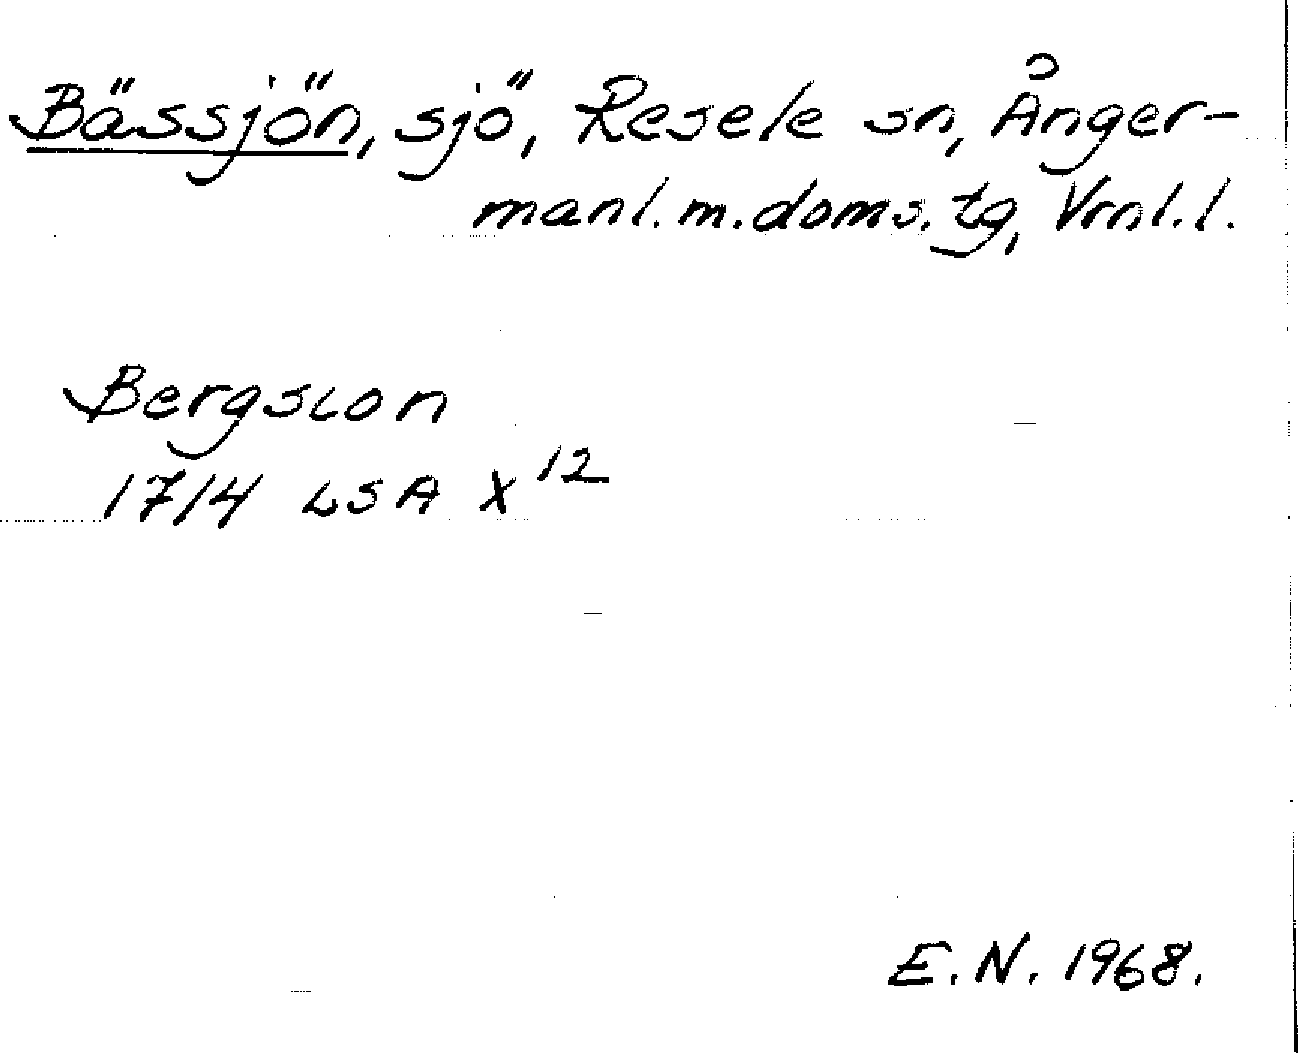 Bässjön, sjö, Resele sn, Ånger-
manl. m. doms. tg, Vrnl. l.
Bergsion
1714 LSA X 12
E.N. 1968.